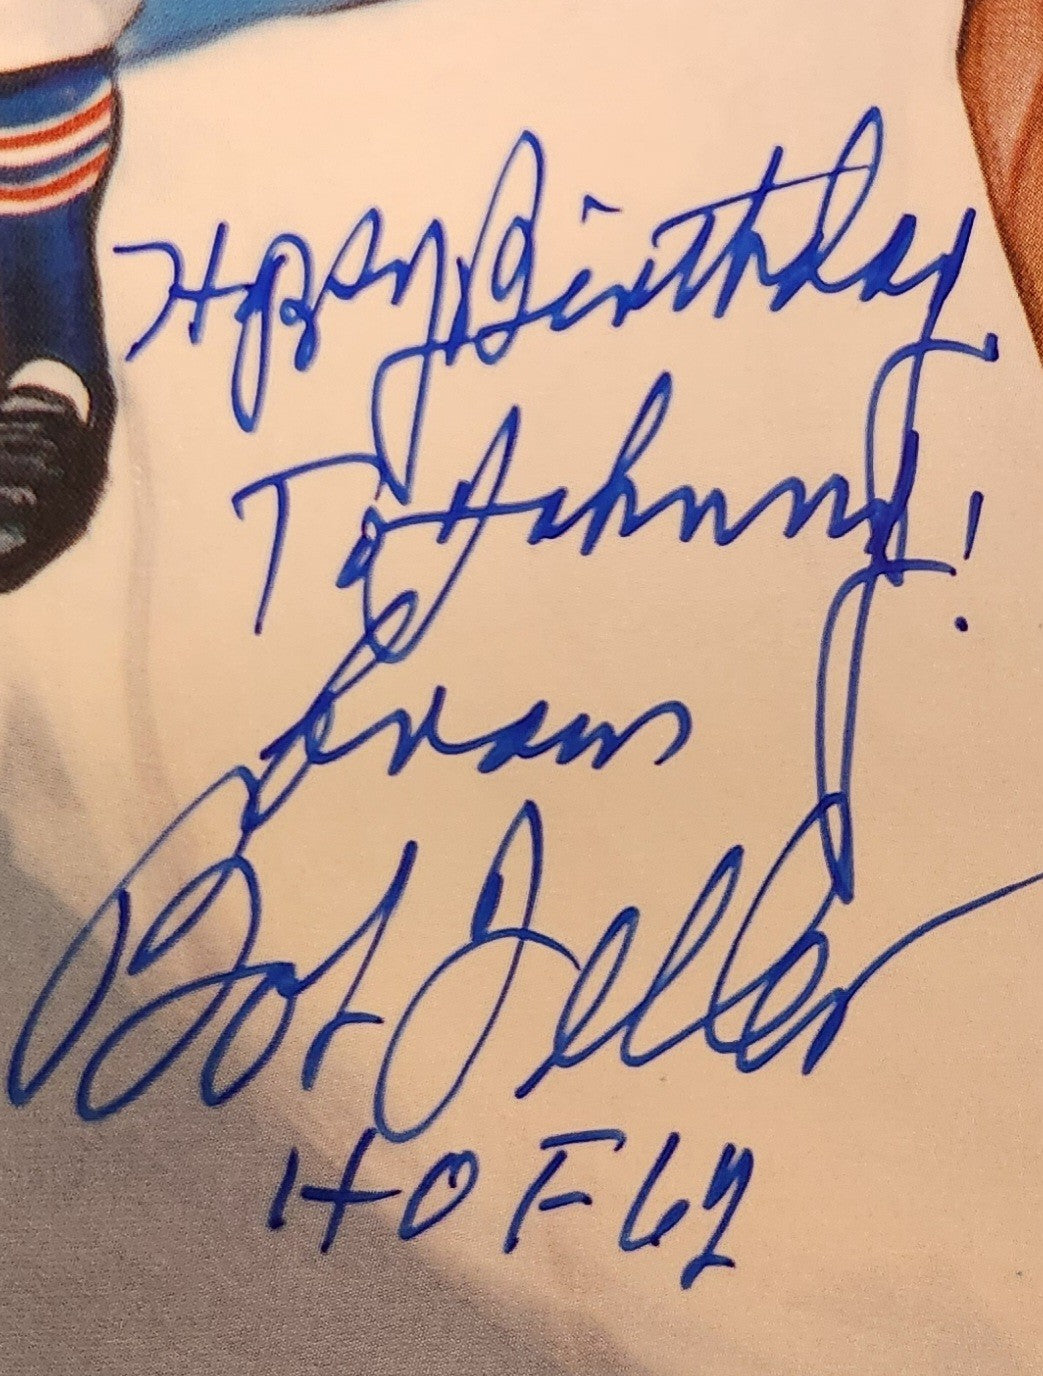 Happy Birthday
To Johnny!
Evans
Bob Feller
HOF 62